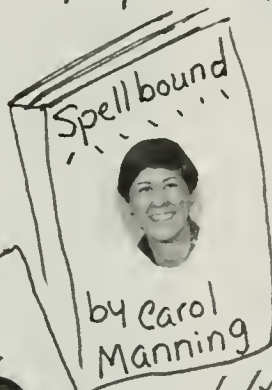 Spellbound
by Carol
Manning